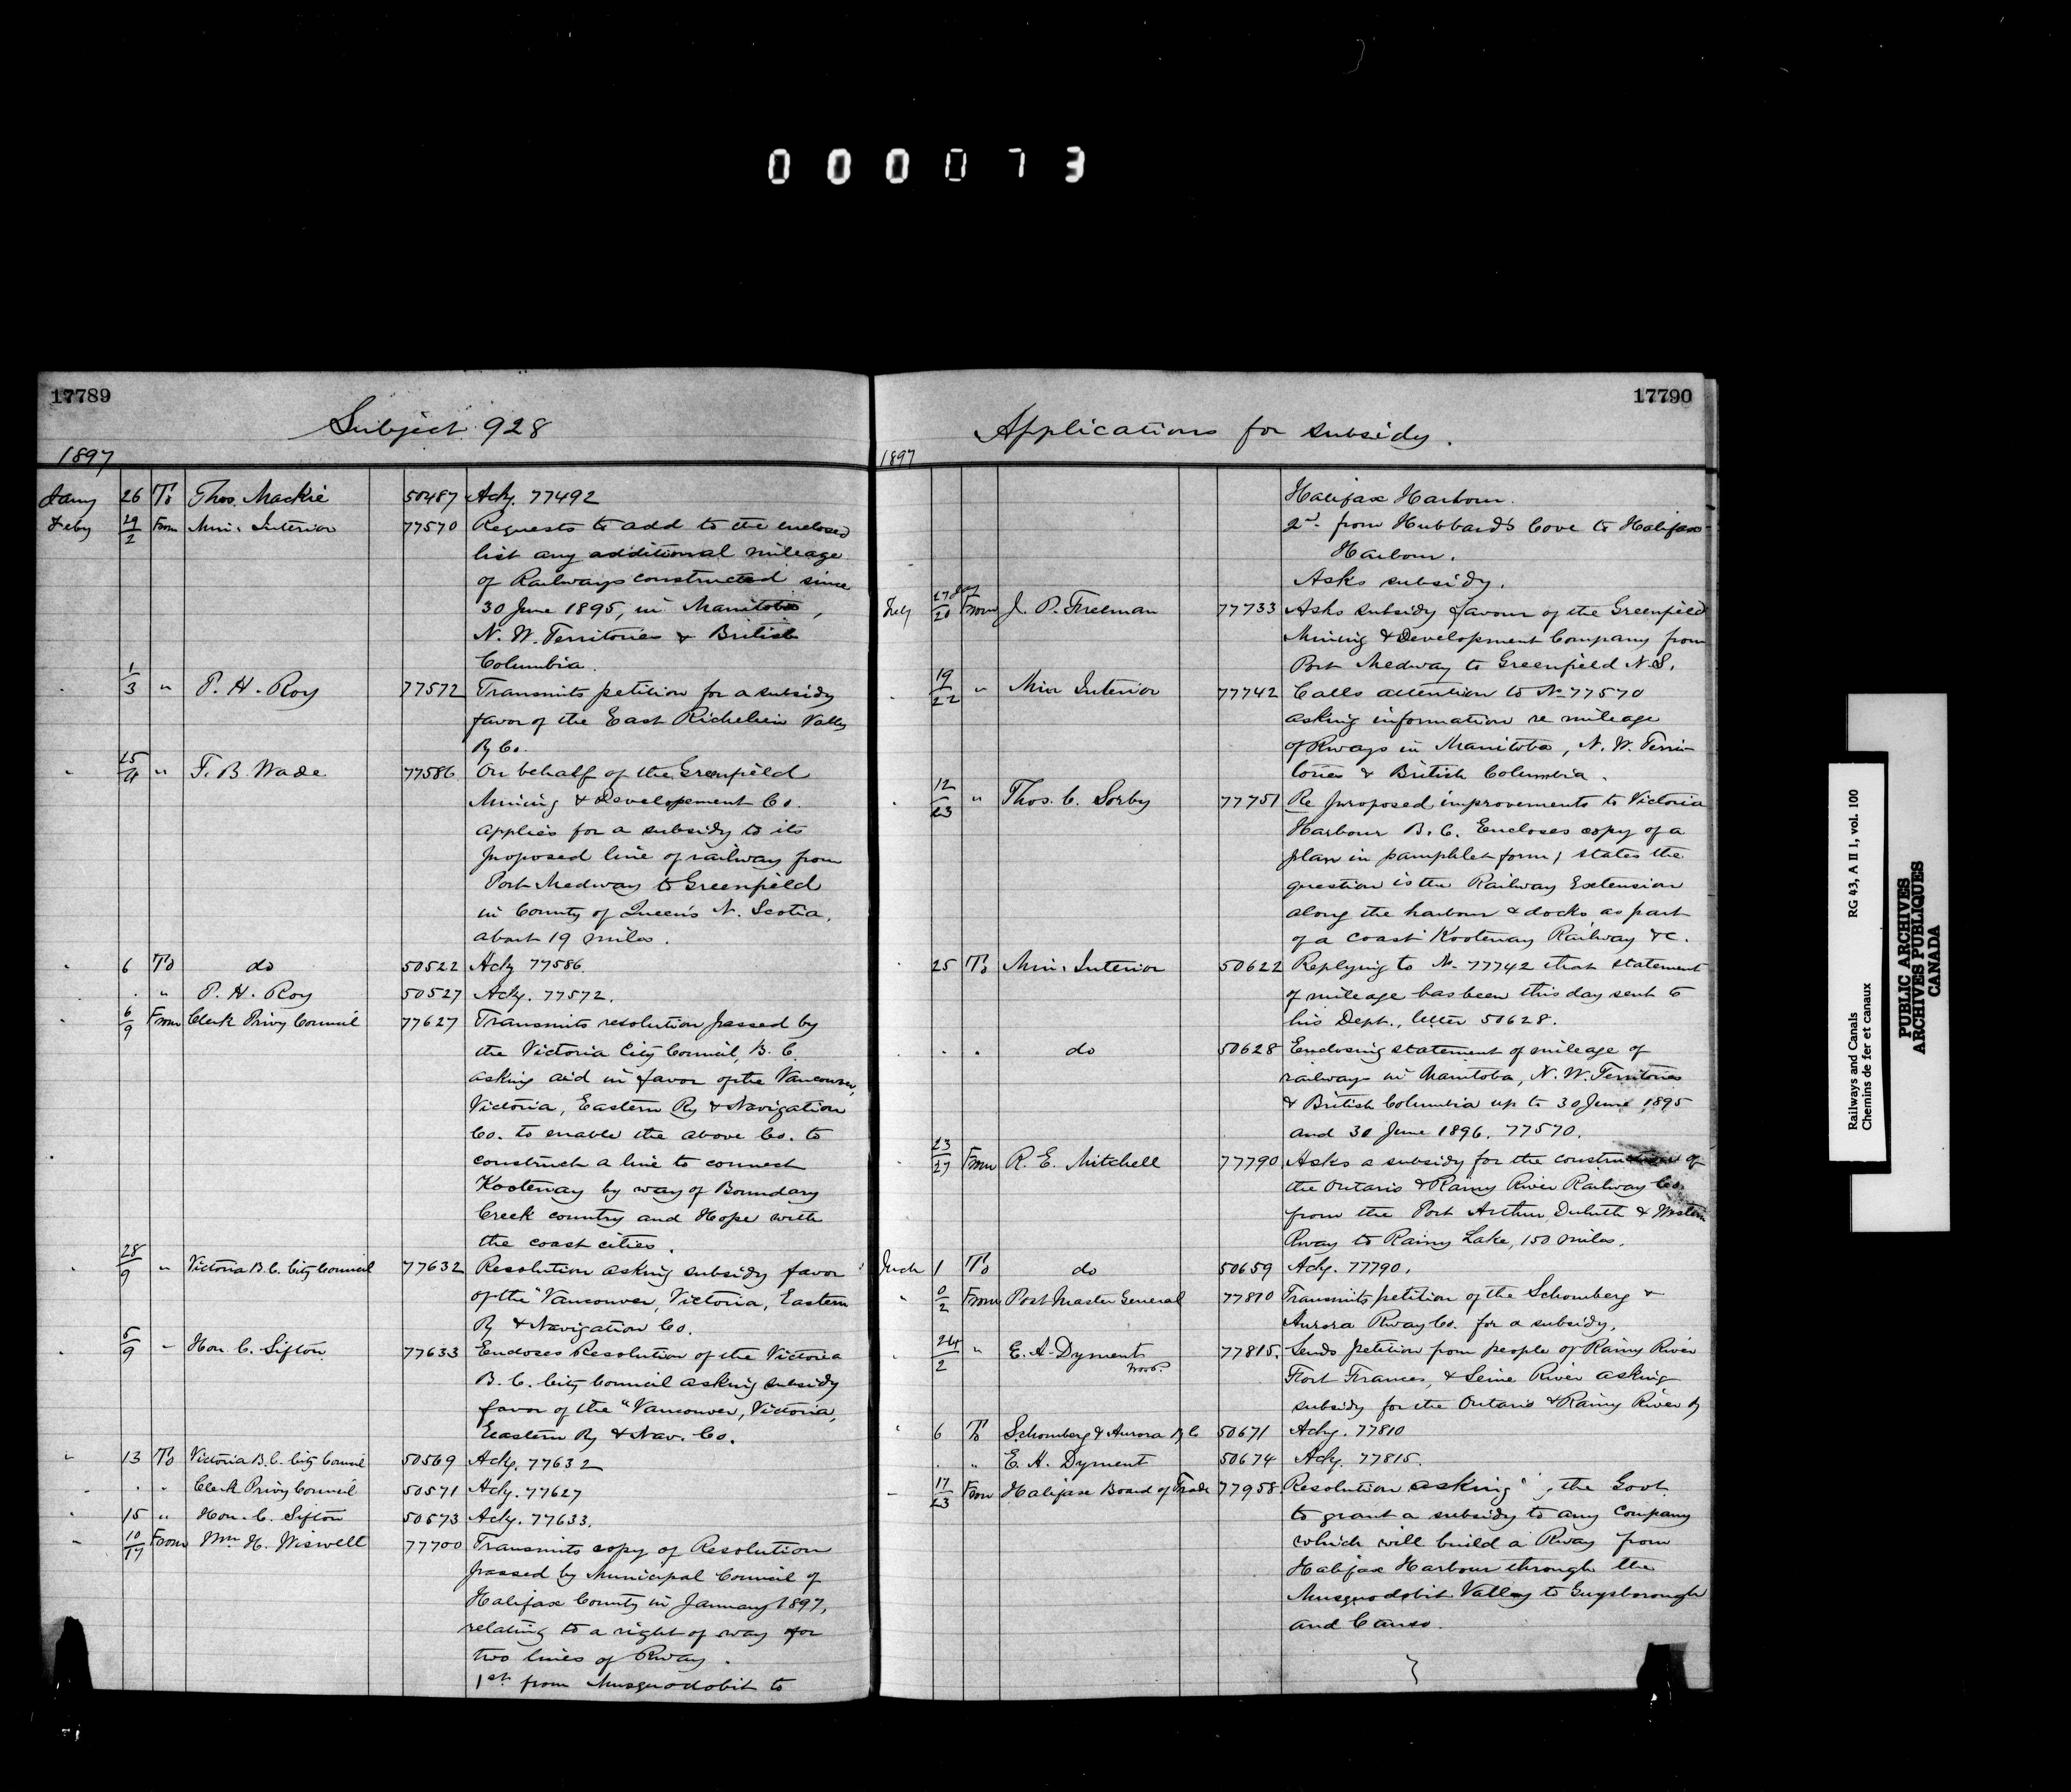 000073
17789
Subject 928
1897
Jany 26 To Thos. Mackie 50487 Ackg. 77492
Feby 29/2 From Min. Interior 77570 Requests to add to the enclosed
list any additional mileage
of Railways constructed since
30 June 1895, in Manitoba,
N. W. Territories & British
Columbia.
" 1/3 " P. H. Roy 77572 Transmits petition for a subsidy
favor of the East Richelieu Valley
Ry Co.
" 25/4 " F. B. Wade 77586 On behalf of the Greenfield
Mining & Developement Co.
applies for a subsidy to its
proposed line of railway from
Port Medway to Greenfield
in County of Queen's N. Scotia,
about 19 miles.
" 6 To do 50522 Ackg 77586.
" " " P. H. Roy 50527 Ackg. 77572.
" 6/9 From Clerk Privy Council 77627 Transmits resolution passed by
the Victoria City Council, B. C.
asking aid in favor of the Vancouver,
Victoria, Eastern Ry & Navigation
Co. to enable the above Co. to
construct a line to connect
Kootenay by way of Boundary
Creek country and Hope with
the coast cities.
" 28/9 " Victoria B. C. City Council 77632 Resolution asking subsidy favor
of the "Vancouver, Victoria, Eastern
Ry & Navigation Co.
" 5/9 " Hon. C. Sifton 77633 Encloses Resolution of the Victoria
B. C. City Council asking subsidy
favor of the "Vancouver, Victoria,
Eastern Ry & Nav. Co.
" 13 To Victoria B. C. City Council 50569 Ackg. 77632
" " " Clerk Privy Council 50571 Ackg. 77627
" 15 " Hon. C. Sifton 50573 Ackg. 77633.
" 10/17 From Wm H. Wiswell 77700 Transmits copy of Resolution
passed by Municipal Council of
Halifax County in January 1897,
relating to a right of way for
two lines of Rway.
1st from Musquodobit to
17790
Applications for subsidy.
1897
Halifax Harbour.
2d. from Hubbard's Cove to Halifax
Harbour.
Asks subsidy.
Feby 27 Jany/20 From J. P. Freeman 77733 Asks subsidy favour of the Greenfield
Mining & Development Company from
Port Medway to Greenfield N.S.
" 19/22 " Min Interior 77742 Calls attention to No 77570
asking information re mileage
of Rways in Manitoba, N. W. Terri-
tories & British Columbia.
" 12/23 " Thos. C. Sorby 77751 Re proposed improvements to Victoria
Harbour B. C. Encloses copy of a
plan in pamphlet form; states the
question is the Railway Extension
along the harbour & docks, as part
of a coast Kootenay Railway &c.
" 25 To Min. Interior 50622 Replying to No. 77742 that statement
of mileage has been this day sent to
his Dept., letter 50628.
" " " do 50628 Enclosing statement of mileage of
railways in Manitoba, N. W. Territories
& British Columbia up to 30 June 1895
and 30 June 1896. 77570.
" 23/27 From R. E. Mitchell 77790 Asks a subsidy for the construction of
the Ontario & Rainy River Railway Co.
from the Port Arthur, Duluth & Western
Rway to Rainy Lake, 150 miles.
Mch 1 To do 50659 Ackg. 77790.
" 0/2 From Post Master General 77810 Transmits petition of the Schomberg &
Aurora Rway Co. for a subsidy.
" 24/2 " E. A. Dyment 77815. Sends petition from people of Rainy River
Fort Frances, & Seine River asking
subsidy for the Ontario & Rainy River Ry
" 6 To Schomberg & Aurora Ry Co 50671 Ackg. 77810
" " " E. A. Dyment 50674 Ackg. 77815.
" 17/23 From Halifax Board of Trade 77958 Resolution asking the Govt
to grant a subsidy to any Company
which will build a Rway from
Halifax Harbour through the
Musquodobit Valley to Guysborough
and Canso.
Railways and Canals RG 43, A II 1, vol. 100
Chemins de fer et canaux
PUBLIC ARCHIVES
ARCHIVES PUBLIQUES
CANADA